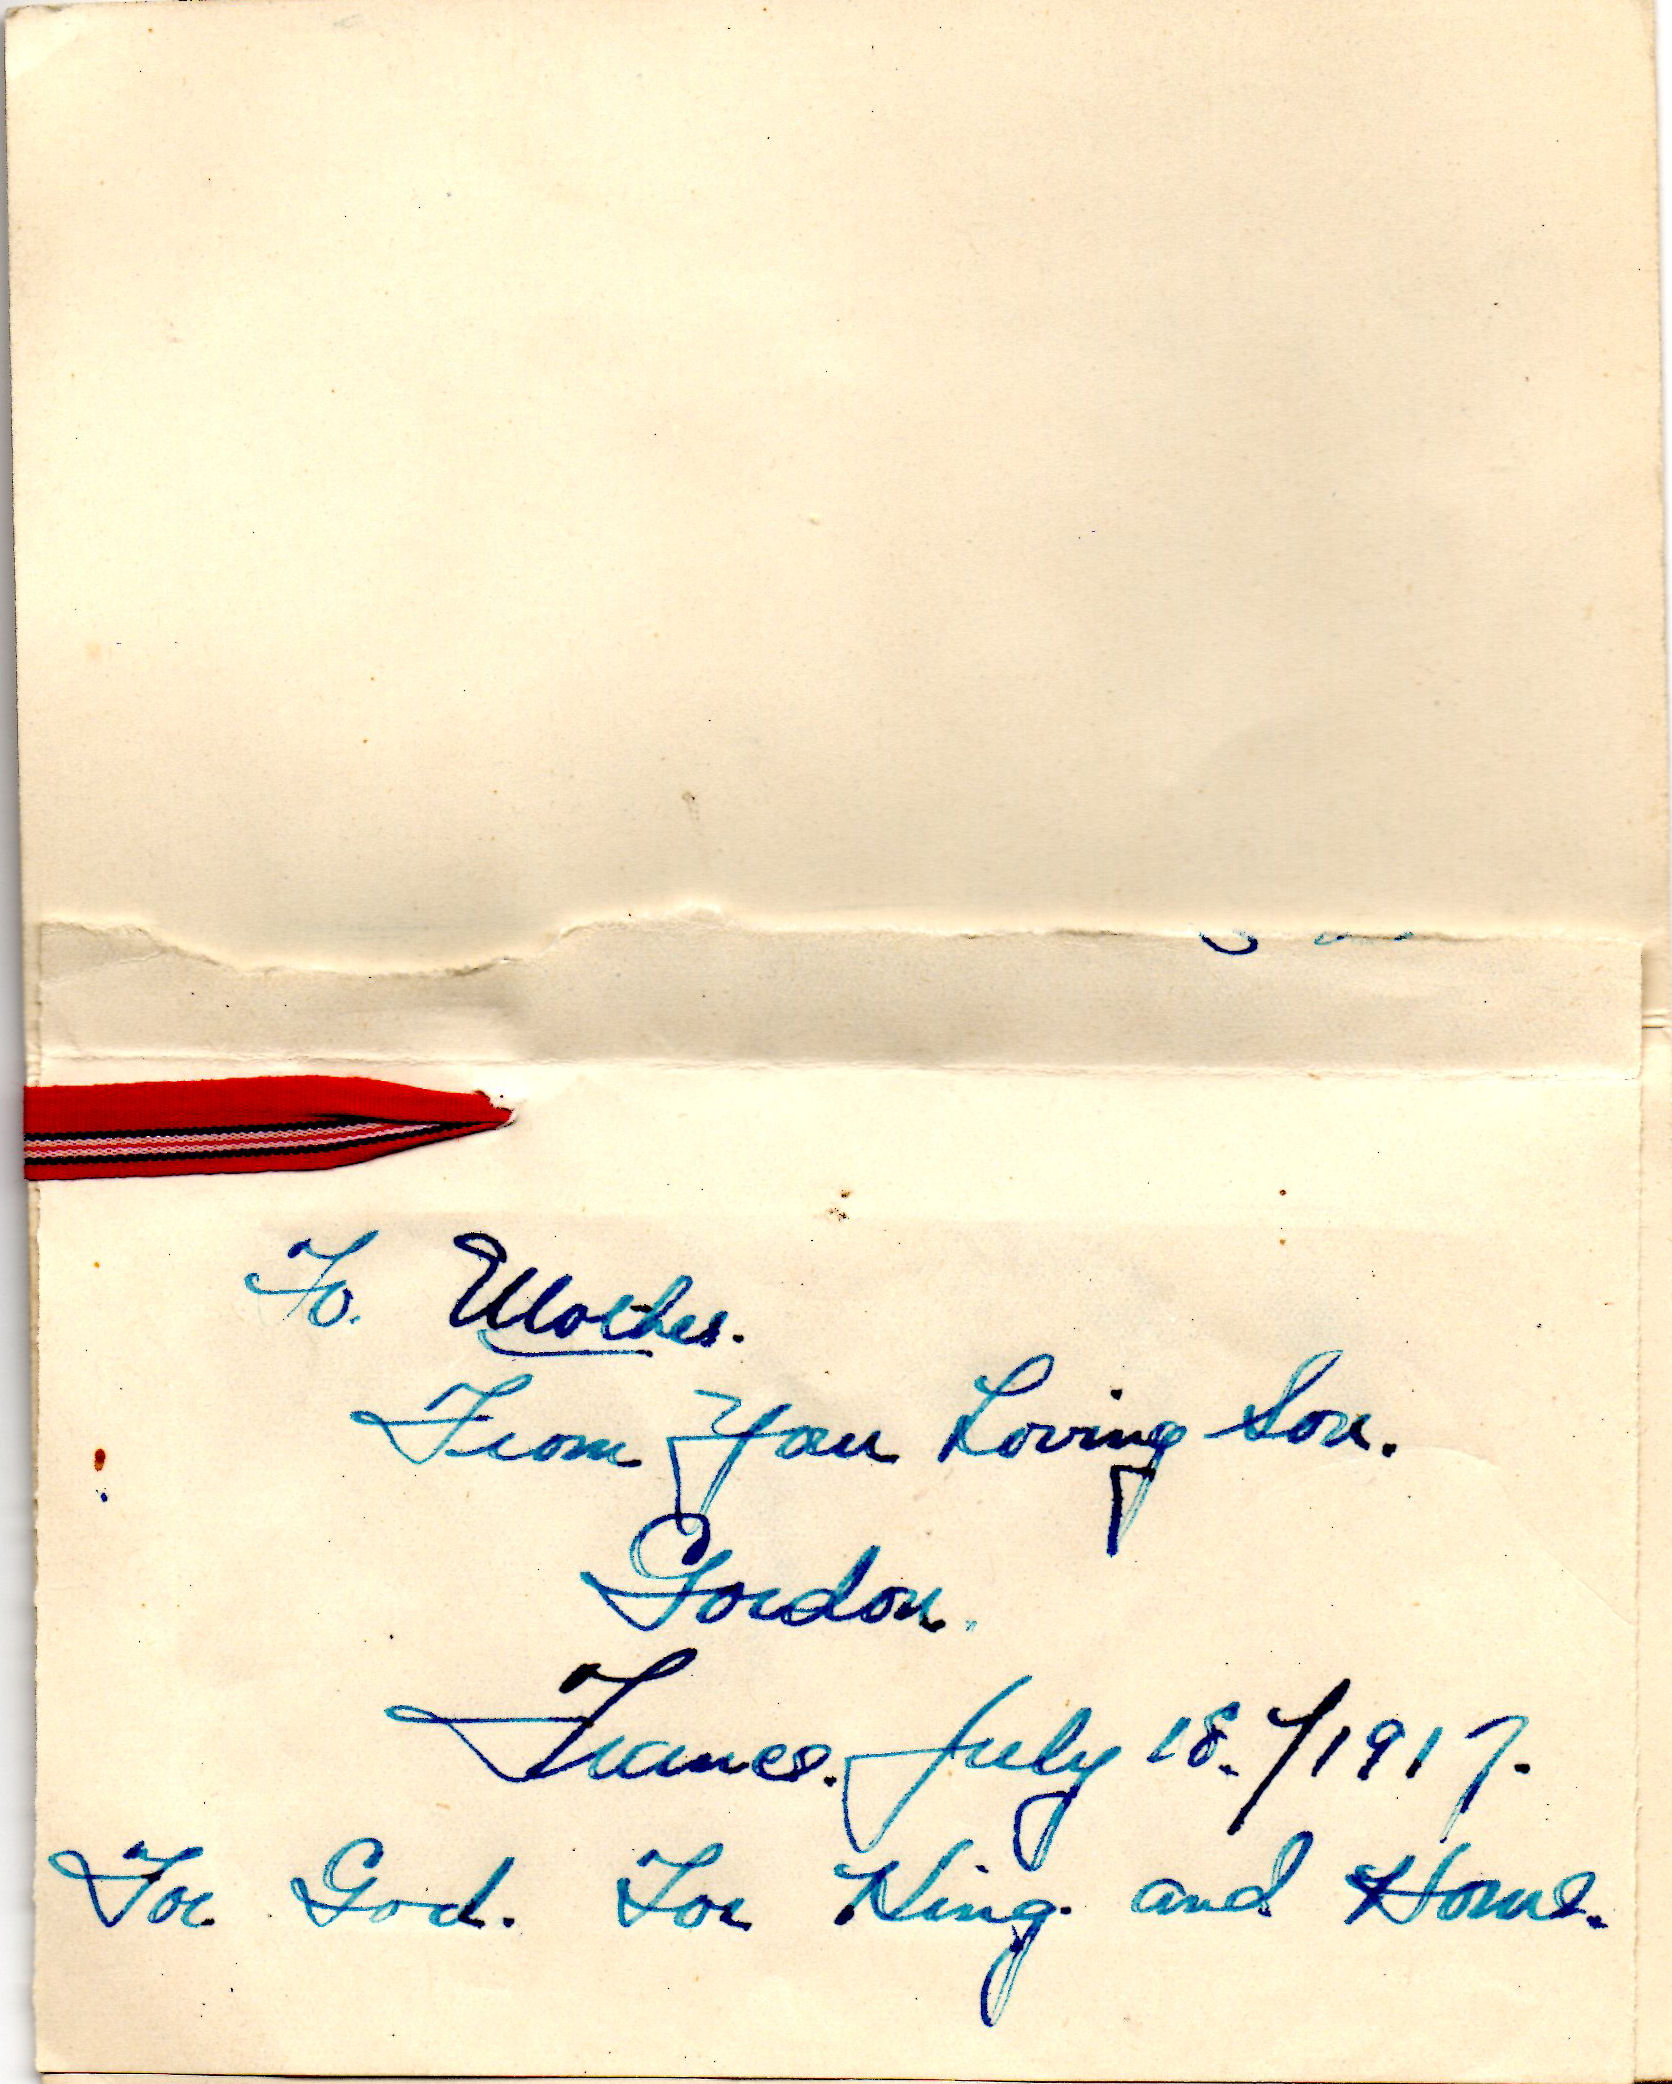 To. Mother.
From Your Loving Son.
Gordon.
France. July 18./1917.
For God. For King. and Home.